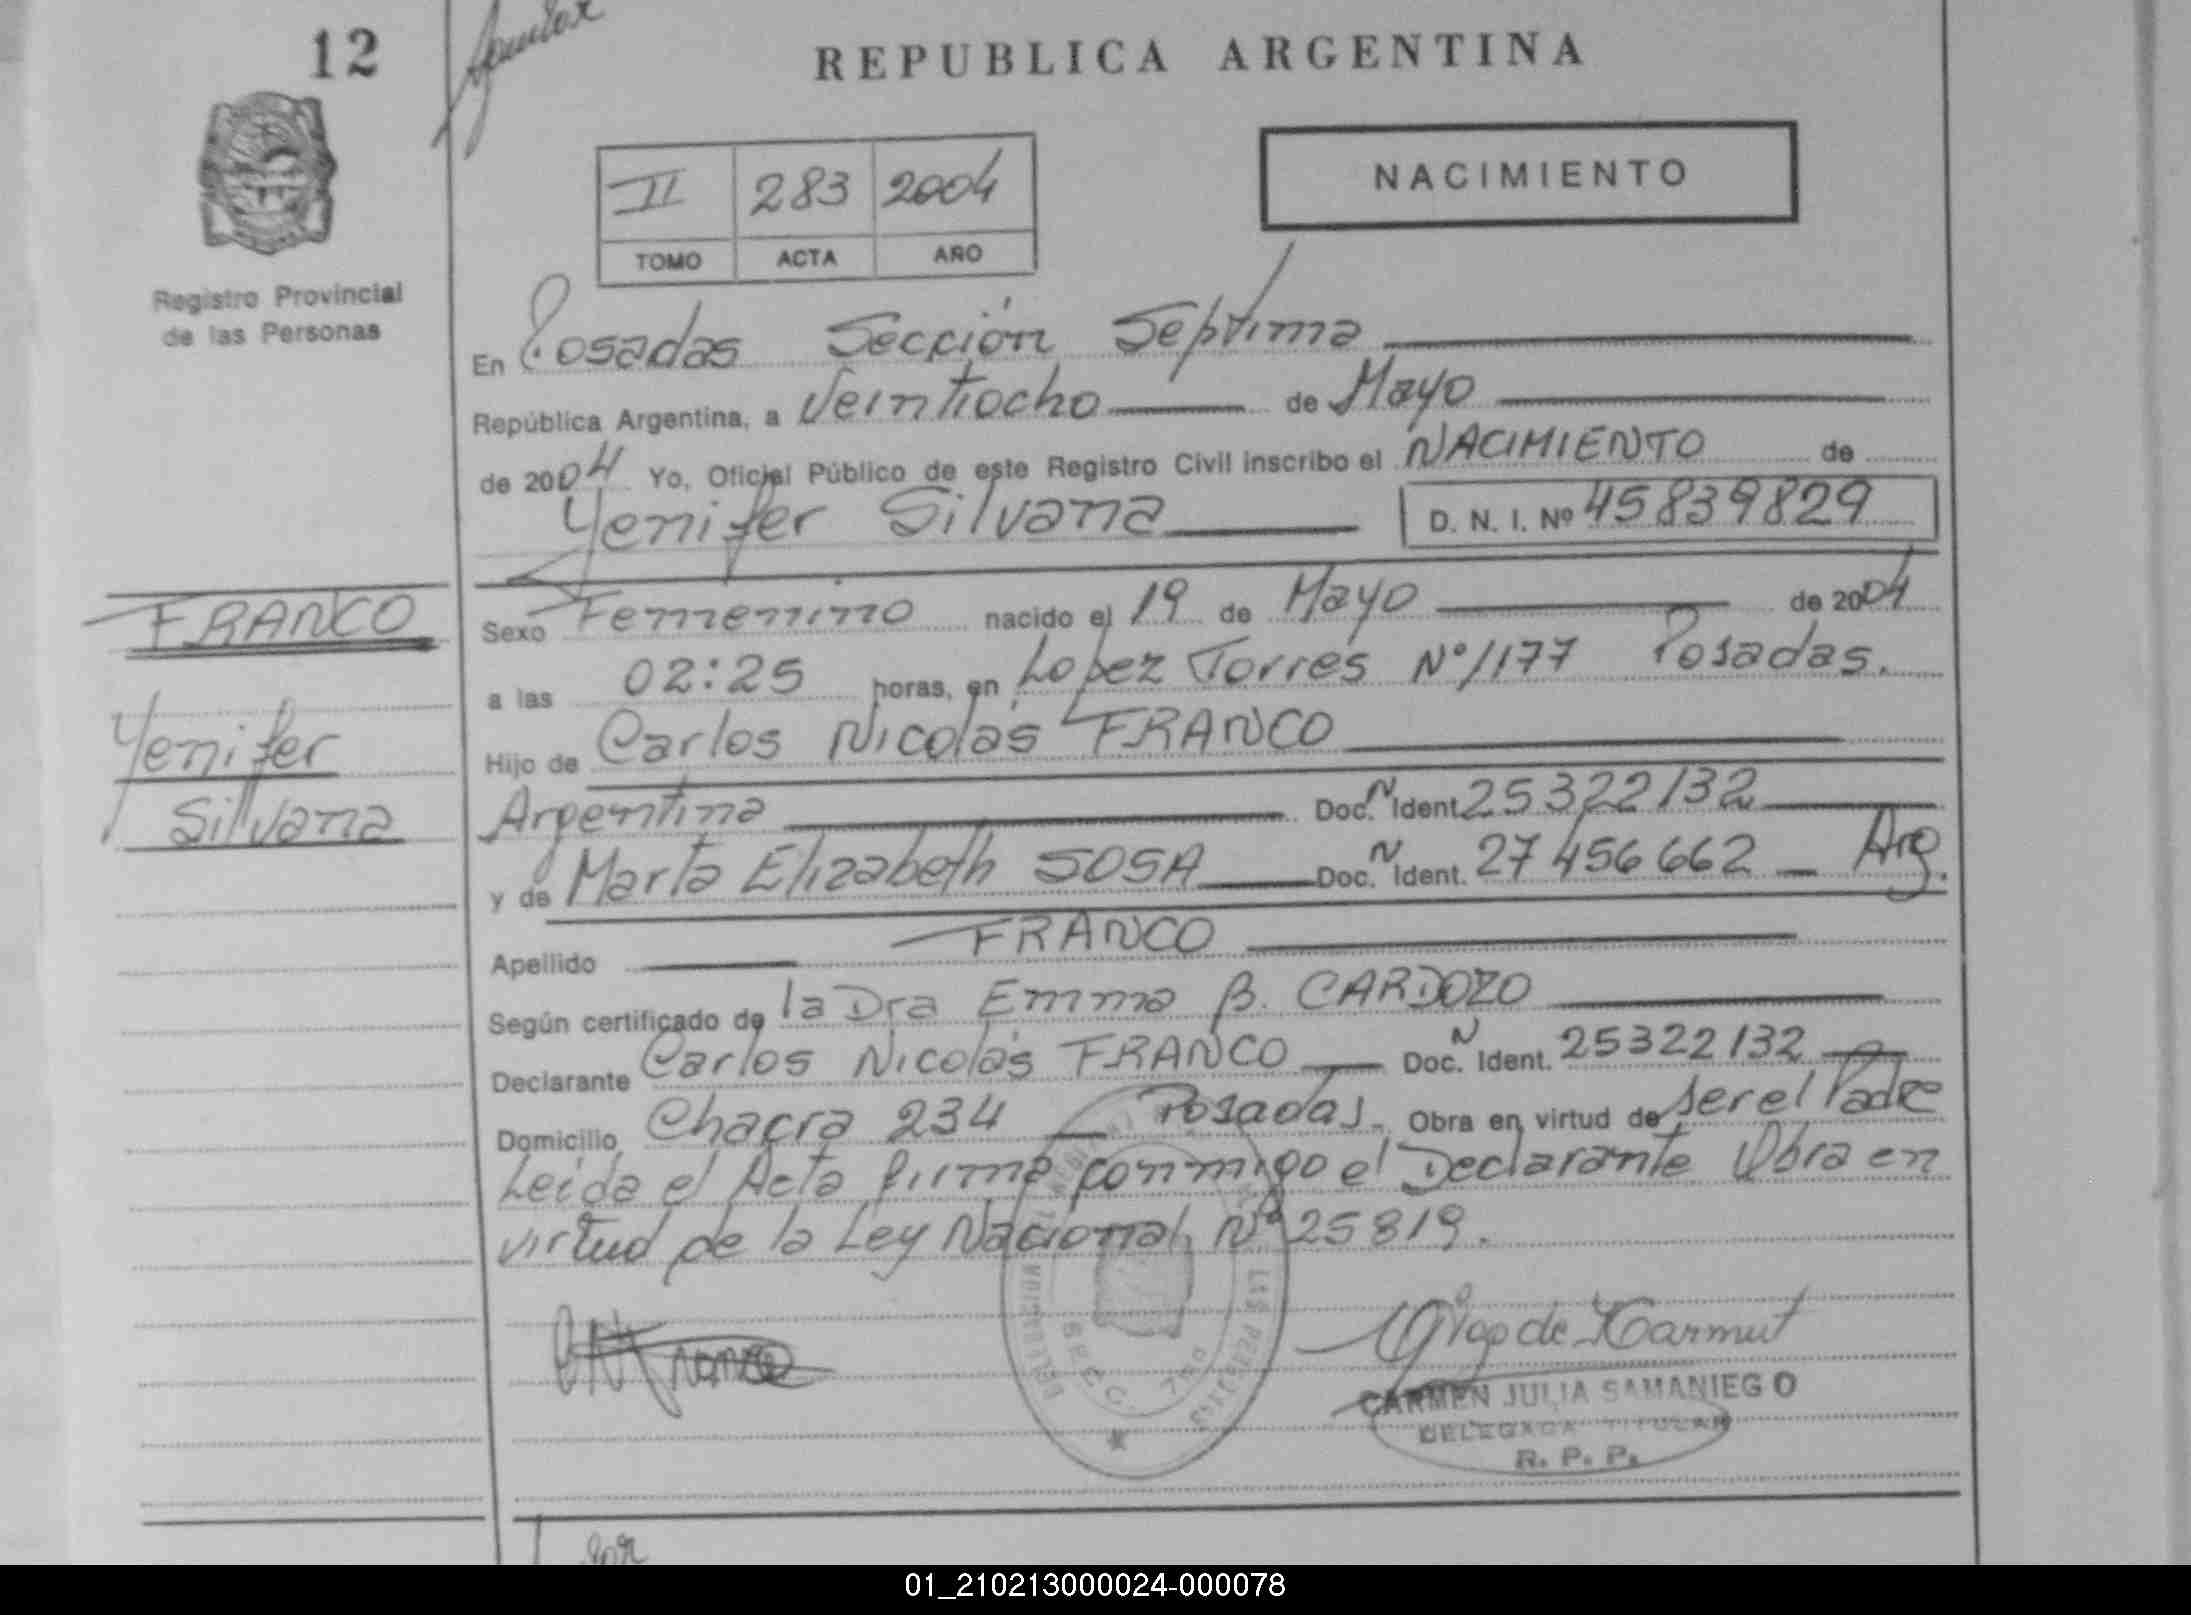 12
REPUBLICA ARGENTINA
NACIMIENTO
II 283 2004
TOMO ACTA AÑO
Registro Provincial
de las Personas
En Posadas Sección Septima
República Argentina, a Veintiocho de Mayo
de 2004 Yo, Oficial Público de este Registro Civil inscribo el NACIMIENTO de
Yenifer Silvana D. N. I. Nº 45839829
FRANCO
Yenifer
Silvana
Sexo Femenino nacido el 19 de Mayo de 2004
a las 02:25 horas, en Lopez Torres Nº 1177 Posadas.
Hijo de Carlos Nicolás FRANCO
Argentina Doc. N Ident. 25322132
y de Marta Elizabeth SOSA Doc. N Ident. 27456662 Arg.
Apellido FRANCO
Según certificado de la Dra Emma B. CARDOZO
Declarante Carlos Nicolás FRANCO Doc. N Ident. 25322132
Domicilio Chacra 234 Posadas. Obra en virtud de ser el Padre
Leida el Acta firma conmigo el Declarante Obra en
virtud de la Ley Nacional Nº 25819.
CARMEN JULIA SAMANIEGO
DELEGADA TITULAR
R. P. P.
01_210213000024-000078